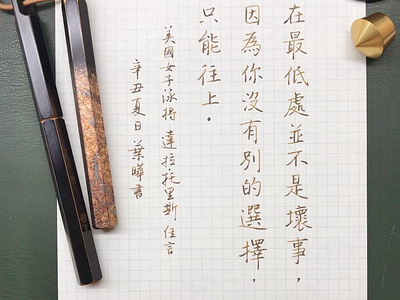 在最低處並不是壞事，
因為你沒有別的選擇，
只能往上。
美國女子泳將 達拉托里斯 佳言
辛丑夏日 葉曄書